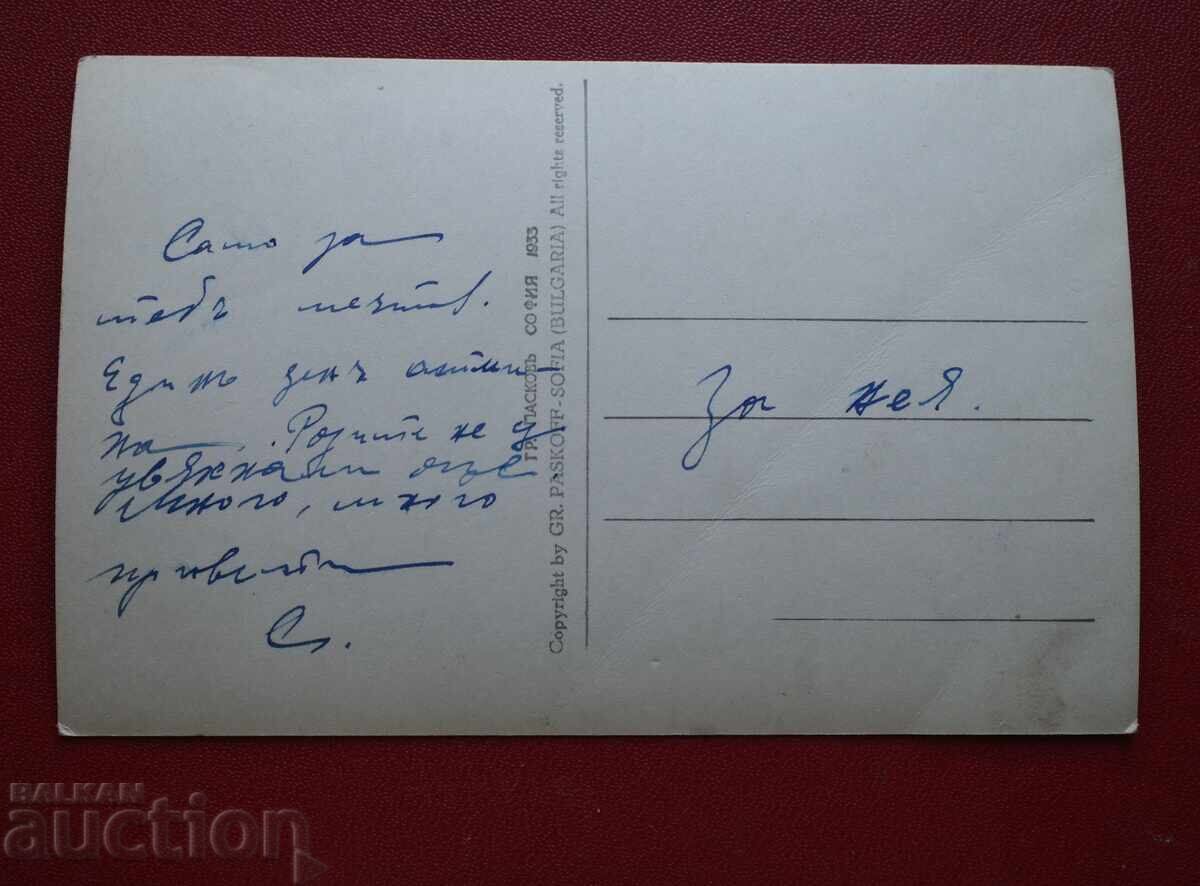 Само за
тебъ мечтая.
Единъ день
на. Розите не
увяхнали още
Много, много
привети
Сл.
ГР. ПАСКОВЪ СОФИЯ 1933
Copyright by GR. PASKOFF-SOFIA (BULGARIA) All rights reserved.
За нея.
BALKAN
auction